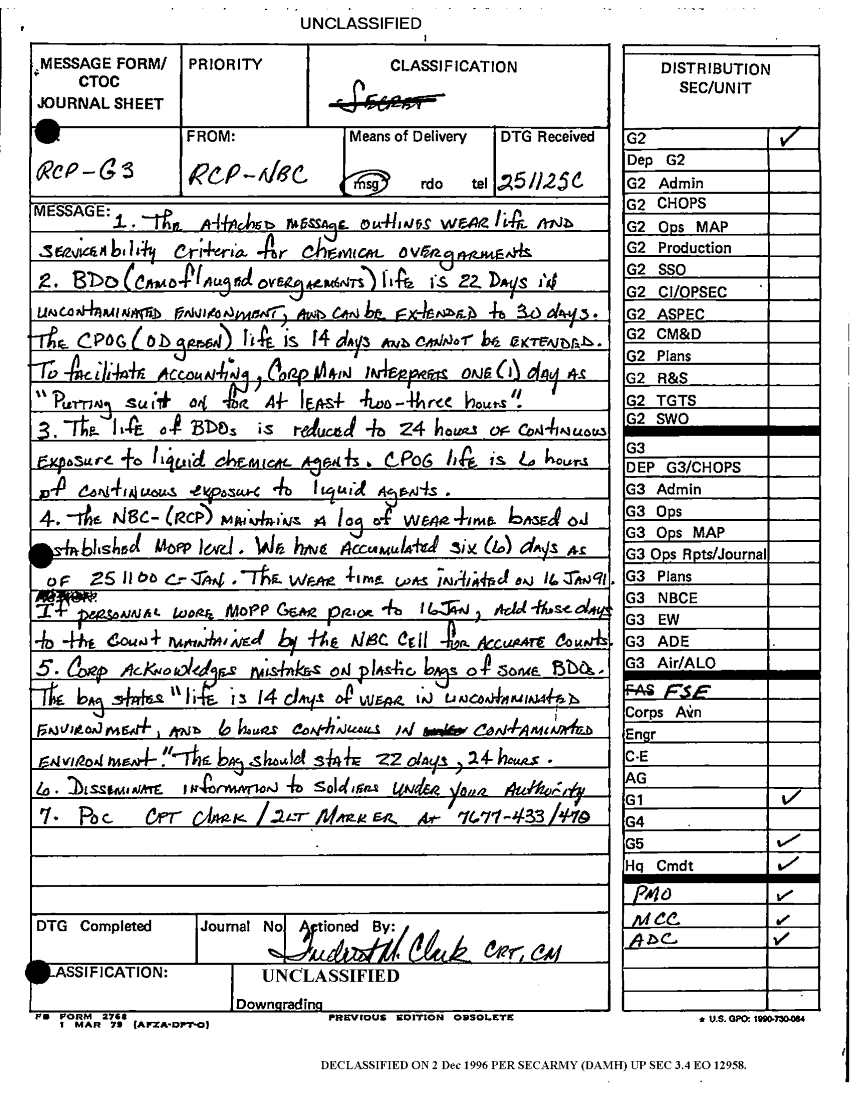 UNCLASSIFIED
MESSAGE FORM/
CTOC
JOURNAL SHEET
PRIORITY
CLASSIFICATION
SECRET
RCP-G3
FROM:
RCP-NBC
Means of Delivery
msg rdo tel
DTG Received
251125C
MESSAGE: 1. The ATTACHED MESSAGE OUTLINES WEAR life AND
SERVICEAbility CRiteria for CHEMICAL OVERGARMENTS
2. BDO (CAMOflauged OVERGARMENTS) life is 22 DAYS in
UNCONTAMINATED ENVIRONMENT, AND CAN bE EXTENDED to 30 days.
The CPOG (OD green) life is 14 days AND CANNOT bE EXTENDED.
To facilitate ACCOUNTING, CORP MAIN INTERPRETS ONE (1) day AS
"Putting suit on for At least two-three hours".
3. The life of BDOs is reduced to 24 hours OF CONTINUOUS
EXPOSURE to liquid chemical Agents. CPOG life is 6 hours
of CONTINUOUS exposure to liquid AGENTS.
4. The NBC-(RCP) MAINTAINS A log of WEAR time based on
stablished MOPP level. WE have Accumulated six (6) days as
OF 251100C JAN. The WEAR time was initiated on 16 JAN 91.
If personnal wore MOPP GEAR prior to 16 JAN, Add those days
to the count maintained by the NBC Cell for ACCURATE Counts.
5. Corp Acknowledges mistakes on plastic bags of some BDOs.
The bag states "life is 14 days of WEAR IN UNCONTAMINATED
ENVIRONMENT, AND 6 hours CONTINUOUS IN CONTAMINATED
ENVIRONMENT." The bag should state 22 days, 24 hours.
6. Disseminate INformation to Soldiers UNDER your Authority
7. POC CPT CLARK / 2LT MARKER At 7677-433/470
DTG Completed
Journal No
Actioned By:
Clark CPT, CM
LASSIFICATION:
UNCLASSIFIED
Downgrading
FB FORM 2768
1 MAR 79 (AFZA-DPT-O)
PREVIOUS EDITION OBSOLETE
DISTRIBUTION
SEC/UNIT
G2 ✓
Dep G2
G2 Admin
G2 CHOPS
G2 Ops MAP
G2 Production
G2 SSO
G2 CI/OPSEC
G2 ASPEC
G2 CM&D
G2 Plans
G2 R&S
G2 TGTS
G2 SWO
G3
DEP G3/CHOPS
G3 Admin
G3 Ops
G3 Ops MAP
G3 Ops Rpts/Journal
G3 Plans
G3 NBCE
G3 EW
G3 ADE
G3 Air/ALO
FAS FSE
Corps Avn
Engr
C-E
AG
G1 ✓
G4
G5 ✓
Hq Cmdt ✓
PMO ✓
MCC ✓
ADC ✓
★ U.S. GPO: 1990-730-084
DECLASSIFIED ON 2 Dec 1996 PER SECARMY (DAMH) UP SEC 3.4 EO 12958.